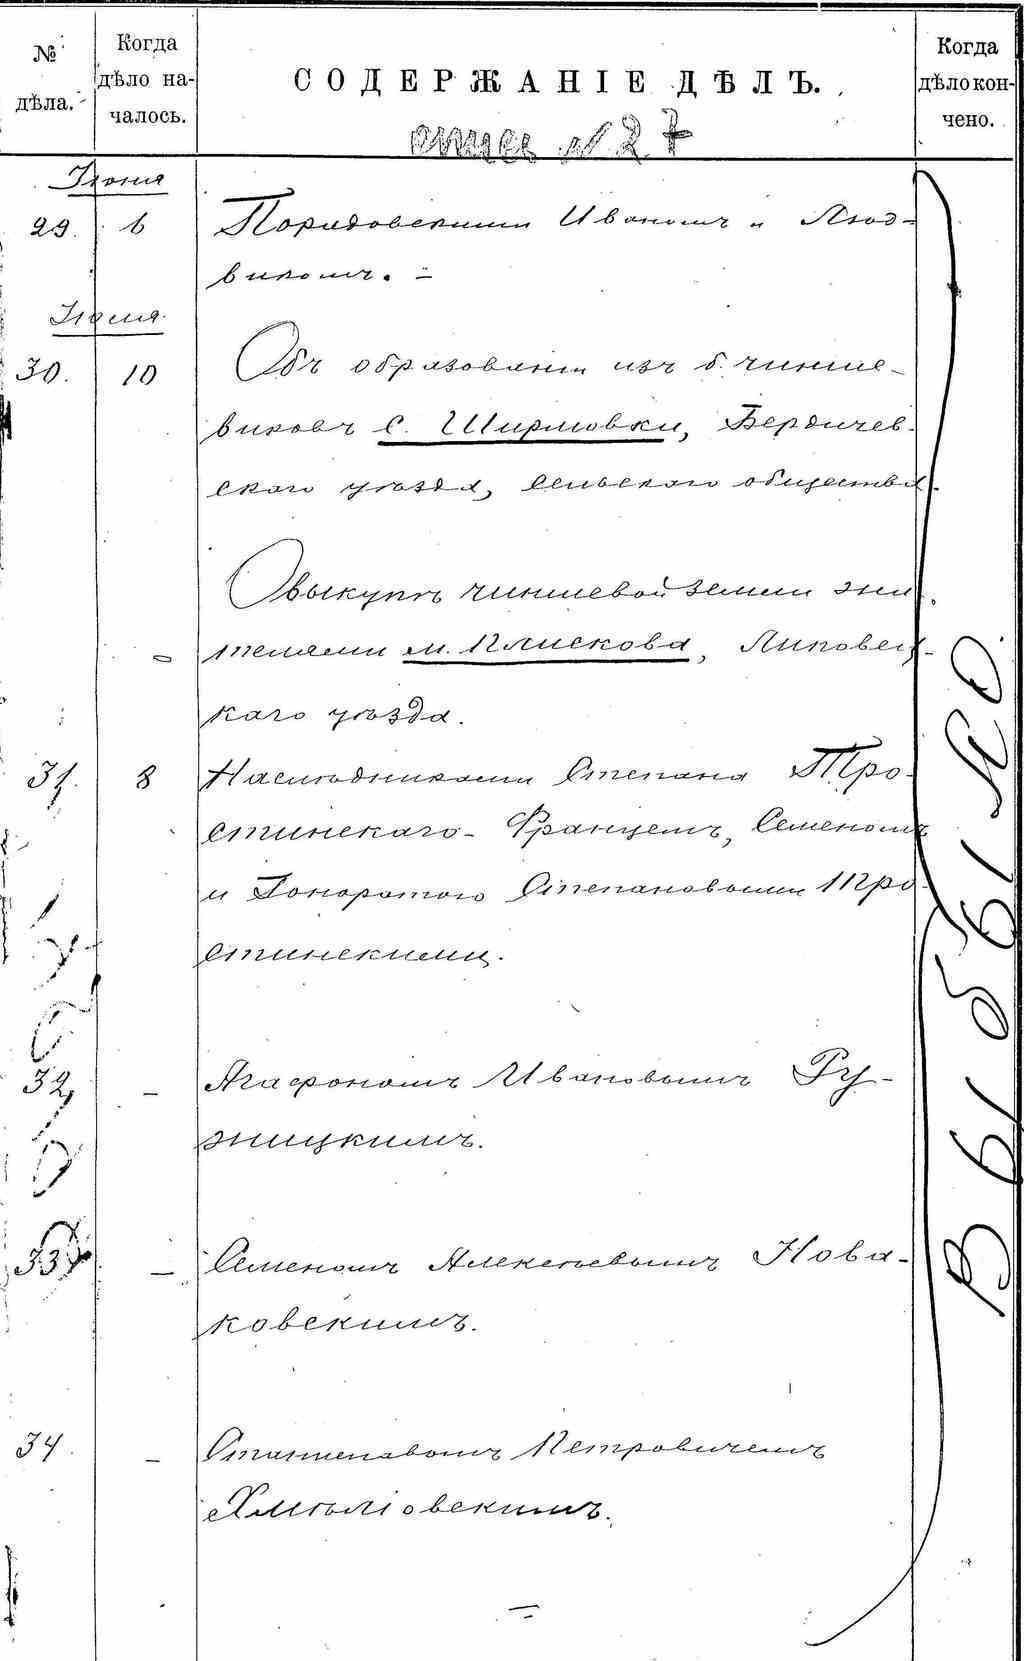 № дѣла.
Когда дѣло на-чалось.
СОДЕРЖАНІЕ ДѢЛЪ.
Когда дѣло кон-чено.
опись N 27
Іюня
29. 6 Порадовскими Иваномъ и Люд-
викомъ.
Іюля
30. 10 Объ образованіи изъ б. чинше-
виковъ с. Ширмовки, Бердичев-
скаго уѣзда, сельскаго общества.
О выкупѣ чиншевой земли жи-
телями м. Плискова, Липовец-
каго уѣзда.
31. 8 Наслѣдниками Степана Тро-
стинскаго - Францемъ, Семеномъ
и Гоноратою Степановыми Тро-
стинскими.
32. - Агафономъ Ивановымъ Ру-
жицкимъ.
33. - Семеномъ Алексѣевымъ Нова-
ковскимъ.
34. - Станиславомъ Петровичемъ
Хмѣлiовскимъ.
выбыло.